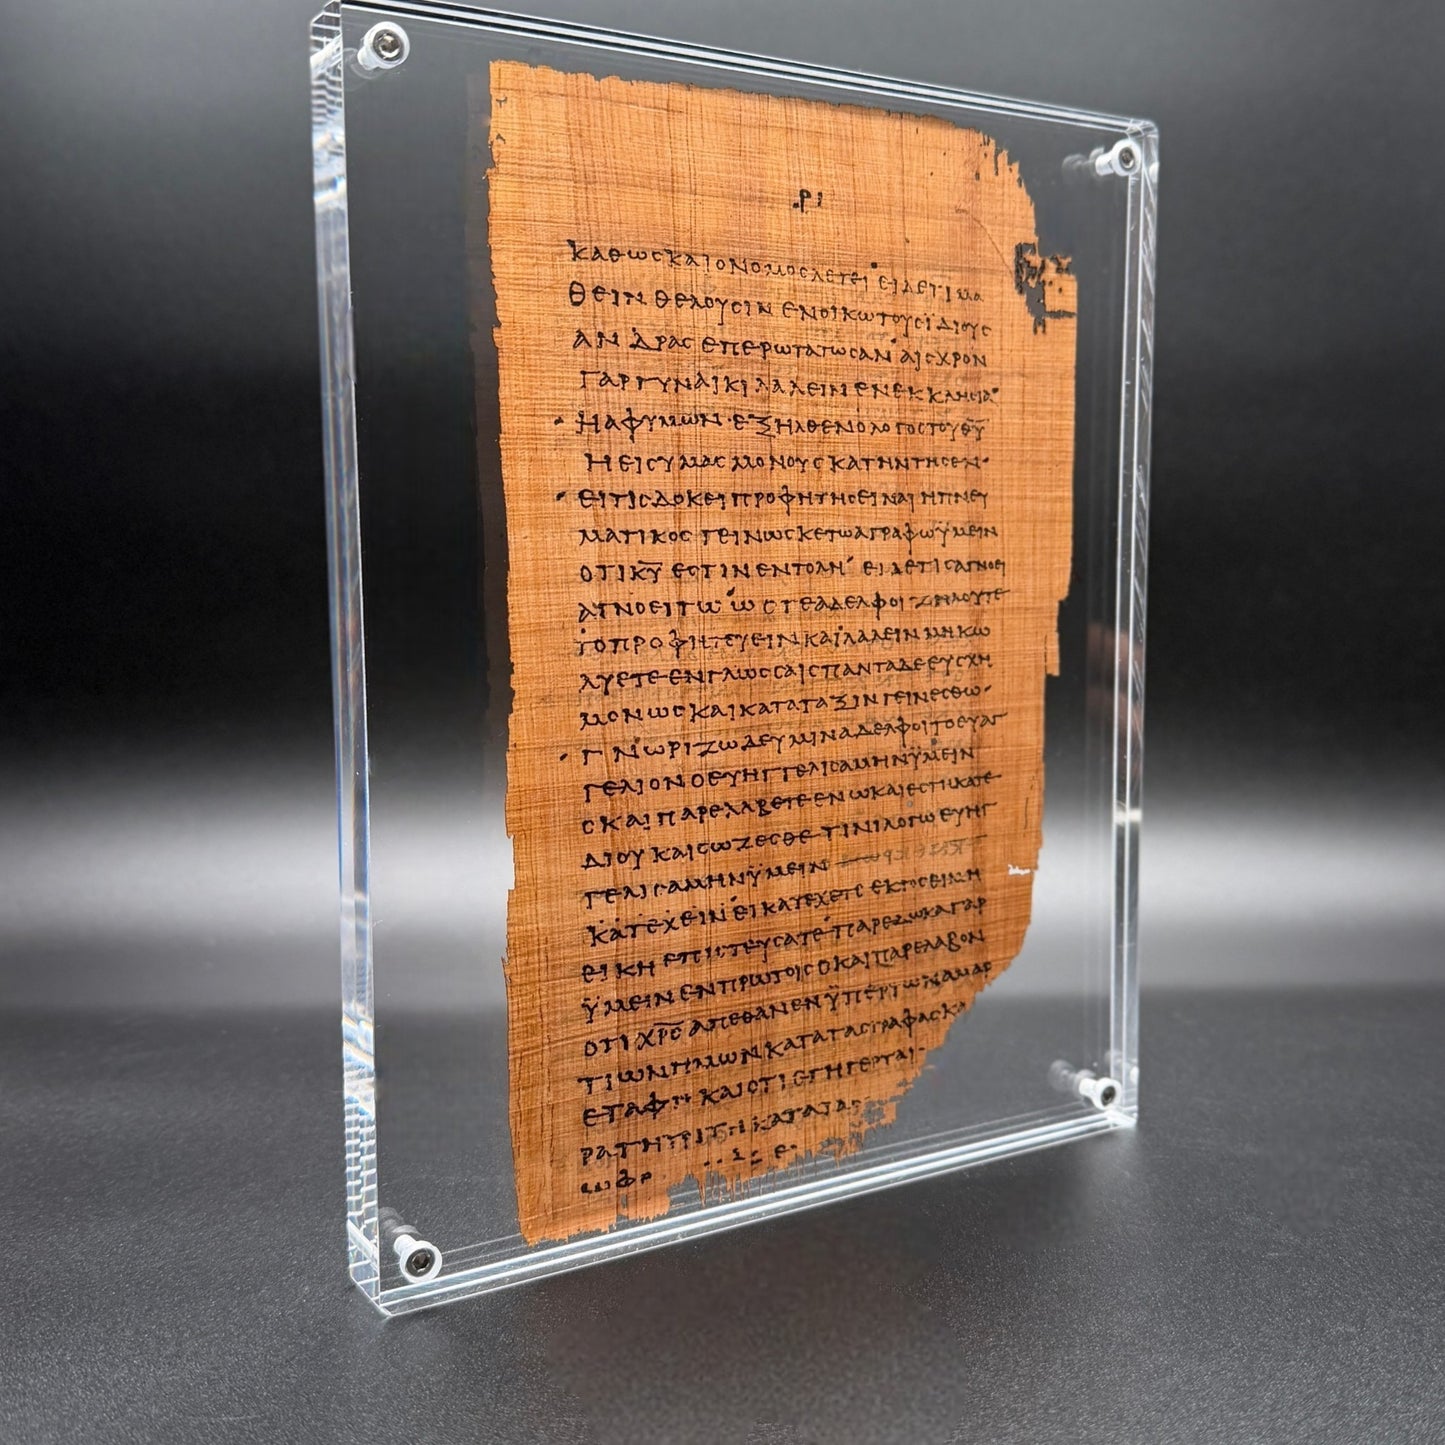 ΡΙ
ΚΑΘΩϹΚΑΙΟΝΟΜΟϹΛΕΓΕΙ ΕΙΔΕΤΙΜΑ
ΘΕΙΝΘΕΛΟΥϹΙΝ ΕΝΟΙΚΩΤΟΥϹΪΔΙΟΥϹ
ΑΝΔΡΑϹ ΕΠΕΡΩΤΑΤΩϹΑΝ ΑΙϹΧΡΟΝ
ΓΑΡΓΥΝΑΙΚΙ ΛΑΛΕΙΝ ΕΝΕΚΚΛΗϹΙΑ
ΗΑΦΥΜΩΝ·ΕΞΗΛΘΕΝΟΛΟΓΟϹΤΟΥΘ̅Υ̅
ΗΕΙϹΥΜΑϹΜΟΝΟΥϹΚΑΤΗΝΤΗϹΕΝ·
ΕΙΤΙϹΔΟΚΕΙΠΡΟΦΗΤΗϹΕΙΝΑΙΗΠΝΕΥ
ΜΑΤΙΚΟϹ ΓΕΙΝΩϹΚΕΤΩΑΓΡΑΦΩΫΜΕΙΝ
ΟΤΙΚ̅Υ̅ ΕϹΤΙΝΕΝΤΟΛΗ ΕΙΔΕΤΙϹΑΓΝΟΕΙ
ΑΓΝΟΕΙΤΩ ΩϹΤΕΑΔΕΛΦΟΙΖΗΛΟΥΤΕ
ΤΟΠΡΟΦΗΤΕΥΕΙΝΚΑΙΛΑΛΕΙΝΜΗΚΩ
ΛΥΕΤΕΕΝΓΛΩϹϹΑΙϹΠΑΝΤΑΔΕΕΥϹΧΗ
ΜΟΝΩϹΚΑΙΚΑΤΑΤΑΞΙΝΓΕΙΝΕϹΘΩ·
ΓΝΩΡΙΖΩΔΕΥΜΙΝΑΔΕΛΦΟΙΤΟΕΥΑΓ
ΓΕΛΙΟΝΟΕΥΗΓΓΕΛΙϹΑΜΗΝΫΜΕΙΝ
ϹΚΑΙΠΑΡΕΛΑΒΕΤΕΕΝΩΚΑΙΕϹΤΗΚΑΤΕ
ΔΙΟΥΚΑΙϹΩΖΕϹΘΕ ΤΙΝΙΛΟΓΩΕΥΗΓ
ΓΕΛΙϹΑΜΗΝΫΜΕΙΝ
ΚΑΤΕΧΕΙΝ ΕΙΚΑΤΕΧΕΤΕ ΕΚΤΟϹΕΙΜΗ
ΕΙΚΗ ΕΠΙϹΤΕΥϹΑΤΕ ΠΑΡΕΔΩΚΑΓΑΡ
ΫΜΕΙΝΕΝΠΡΩΤΟΙϹΟΚΑΙΠΑΡΕΛΑΒΟΝ
ΟΤΙΧ̅Ρ̅Ϲ̅ ΑΠΕΘΑΝΕΝΫΠΕΡΤΩΝΑΜΑΡ
ΤΙΩΝΗΜΩΝΚΑΤΑΤΑϹΓΡΑΦΑϹΚΑ
ΕΤΑΦΗ ΚΑΙΟΤΙΕΓΗΓΕΡΤΑΙ
ΡΑΤΗΤΡΙΤΗΚΑΤΑΤΑϹ